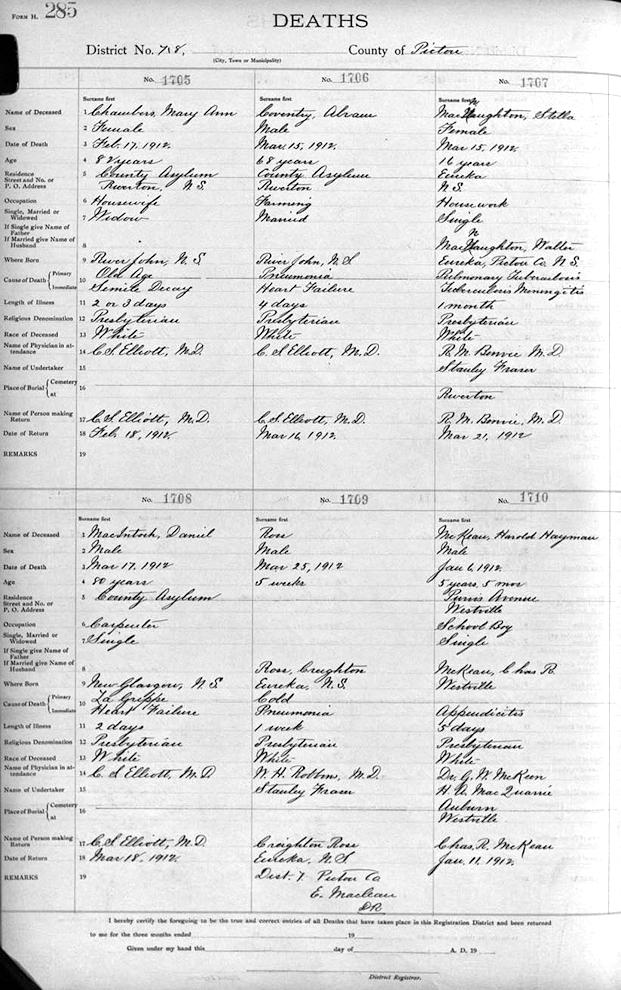 FORM H. 285
DEATHS
District No. 718, County of Pictou
(City, Town or Municipality)
No. 1705 No. 1706 No. 1707
Surname first Surname first Surname first
Name of Deceased 1 Chambers, Mary Ann Coventry, Abram MacNaughton, Stella
Sex 2 Female Male Female
Date of Death 3 Feb. 17, 1912 Mar. 15, 1912. Mar 15, 1912.
Age 4 82 years 68 years 16 years
Residence 5 County Asylum County Asylum Eureka
Street and No. or P. O. Address Riverton, N.S. Riverton N.S.
Occupation 6 Housewife Farming Housework
Single, Married or Widowed 7 Widow Married Single
If Single give Name of Father
If Married give Name of Husband 8 MacNaughton, Walter
Where Born 9 River John, N.S. River John, N.S Eureka, Pictou Co. N.S.
Cause of Death Primary 10 Old Age Pneumonia Pulmonary Tuberculosis
Immediate Senile Decay Heart Failure Tuberculosis Meningitis
Length of Illness 11 2 or 3 days 4 days 1 month
Religious Denomination 12 Presbyterian Presbyterian Presbyterian
Race of Deceased 13 White White White
Name of Physician in attendance 14 C. S. Elliott, M.D. C. S. Elliott, M.D. R. M. Benvie M.D.
Name of Undertaker 15 Stanley Fraser
Place of Burial Cemetery at 16 Riverton
Name of Person making Return 17 C. S. Elliott, M.D. C. S. Elliott, M.D. R. M. Benvie, M.D.
Date of Return 18 Feb. 18, 1912. Mar 16, 1912. Mar 21, 1912
REMARKS 19
No. 1708 No. 1709 No. 1710
Surname first Surname first Surname first
Name of Deceased 1 MacIntosh, Daniel Ross McKeau, Harold Hayman
Sex 2 Male Male Male
Date of Death 3 Mar 17. 1912 Mar 25, 1912 Jan 6, 1912.
Age 4 80 years 5 weeks 5 years, 5 mos
Residence 5 County Asylum Purvis Avenue
Street and No. or P. O. Address Westville
Occupation 6 Carpenter School Boy
Single, Married or Widowed 7 Single Single
If Single give Name of Father
If Married give Name of Husband 8 Ross, Creighton McKeau, Chas R.
Where Born 9 New Glasgow, N.S Eureka, N.S. Westville
Cause of Death Primary 10 La Grippe Cold
Immediate Heart Failure Pneumonia Appendicitis
Length of Illness 11 2 days 1 week 5 days
Religious Denomination 12 Presbyterian Presbyterian Presbyterian
Race of Deceased 13 White White White
Name of Physician in attendance 14 C. S Elliott, M.D W. H. Robbins, M.D. Dr. G. W. McKeen
Name of Undertaker 15 Stanley Fraser H. A. MacQuarrie
Place of Burial Cemetery at 16 Auburn
Westville
Name of Person making Return 17 C. S. Elliott, M.D. Creighton Ross Chas. R. McKeau
Date of Return 18 Mar 18, 1912. Eureka, N.S Jan. 11, 1912.
REMARKS 19 Dist. 7. Pictou Co
E. Maclean
DR
I hereby certify the foregoing to be the true and correct entries of all Deaths that have taken place in this Registration District and been returned
to me for the three months ended 19
Given under my hand this day of A. D. 19
District Registrar.